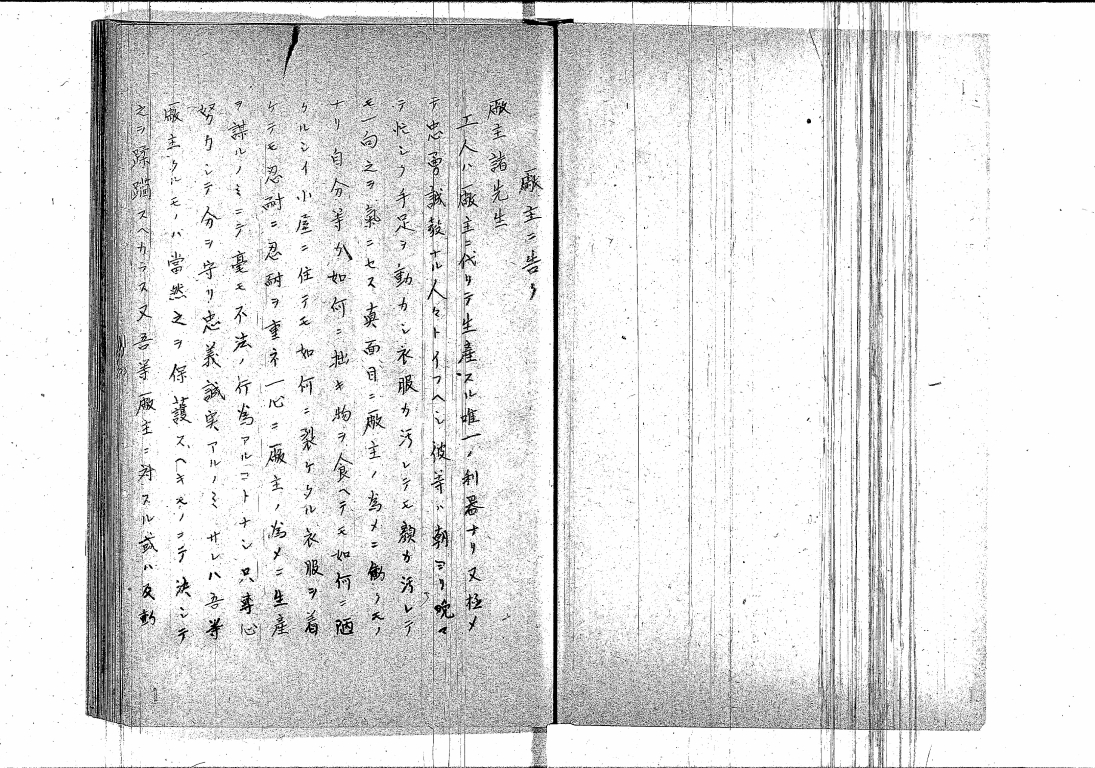 廠主ニ告ク
廠主諸先生
工人ハ廠主ニ代リテ生産スル唯一ノ利器ナリ又極メ
テ忠勇誠毅ナル人々トイフヘシ彼等ハ朝ヨリ晩マ
テ忙シク手足ヲ動カシ衣服カ汚レテモ顔カ汚レテ
モ一向之ヲ氣ニセス真面目ニ廠主ノ為メニ働クモノ
ナリ自分等カ如何ニ拙キ物ヲ食ヘテモ如何ニ陋
クルシイ小屋ニ住テモ如何ニ裂ケタル衣服ヲ着
ケテモ忍耐ニ忍耐ヲ重ネ一心ニ廠主ノ為メニ生産
ヲ謀ルノミニテ毫モ不法ノ行為アルコトナシ只専心
努力シテ分ヲ守リ忠義誠実アルノミ サレハ吾等
廠主タルモノハ當然之ヲ保護スヘキモノニテ決シテ
之ヲ蹂躙スヘカラス又吾等廠主ニ対スル或ハ反動